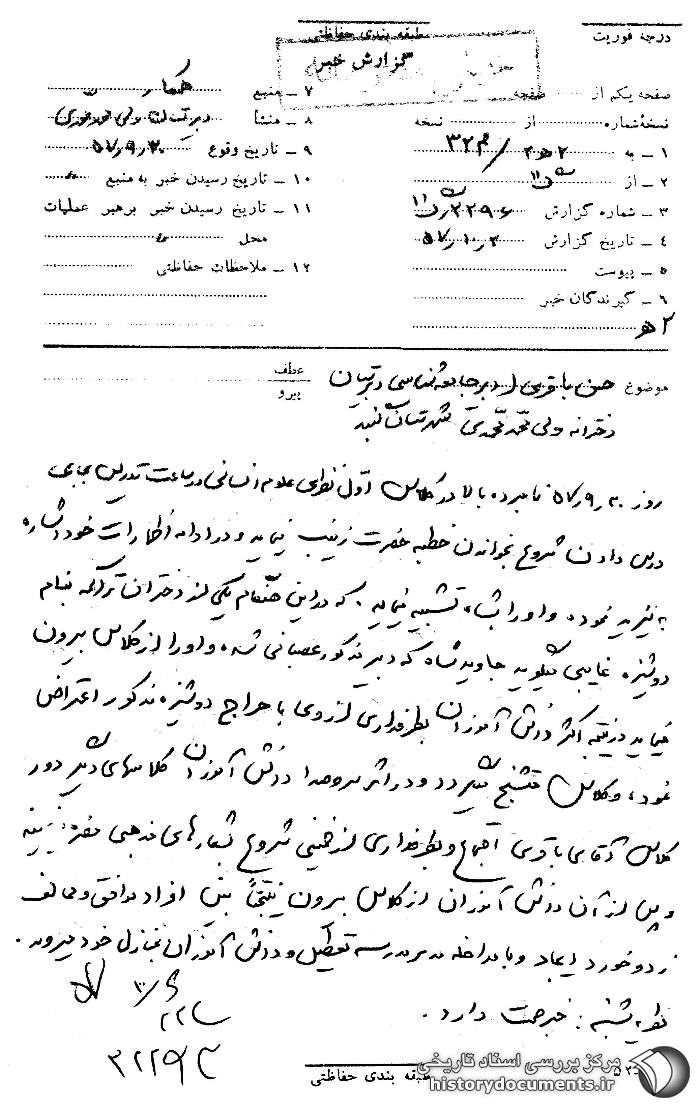 درجه فوریت
طبقه بندی حفاظتی
گزارش خبر
صفحه یکم از صفحه
نسخهٔ شماره از نسخه
۱ ــ به ۳۲۴
۲ ــ از
۳ ــ شماره گزارش
۴ ــ تاریخ گزارش ۵۷٫۱۰٫۲
۵ ــ پیوست
۶ ــ گیرندگان خبر
۷ ــ منبع همکار
۸ ــ منشا
۹ ــ تاریخ وقوع ۵۷٫۹٫۲۰
۱۰ ــ تاریخ رسیدن خبر به منبع
۱۱ ــ تاریخ رسیدن خبر برهبر عملیات
محل
۱۲ ــ ملاحظات حفاظتی
موضوع حسن باقری دبیر جامعه شناسی دبیرستان
عطف
پیرو
دخترانه ولی محمد محمدی شهرستان گنبد
روز نامبرده بالا در کلاس اول نظری علوم انسانی در ساعت تدریس بجای
درس دادن شروع بخواندن خطبه حضرت زینب مینماید و در ادامه اظهارات خود اشاره
به یزید نموده و او را بشاه تشبیه مینماید. که در این هنگام یکی از دختران تراکمه بنام
دوشیزه میگوید جاوید شاه که دبیر مذکور عصبانی شده و او را از کلاس بیرون
مینماید در نتیجه اکثر دانش آموزان بطرفداری از وی با خراج دوشیزه مذکور اعتراض
نموده و کلاس متشنج میگردد و در اثر سروصدا دانش آموزان کلاسهای دیگر دور
کلاس آقای باقری اجتماع و بطرفداری از خمینی شروع بشعارهای مذهبی مضره مینمایند
و پس از آن دانش آموزان از کلاس بیرون نتیجتاً بین افراد موافق و مخالف
زد و خورد ایجاد و با مداخله مدیر مدرسه تعطیل و دانش آموزان بمنازل خود میروند.
نظریه شنبه: خبر صحت دارد.
طبقه بندی حفاظتی
مرکز بررسی اسناد تاریخی
historydocuments.ir